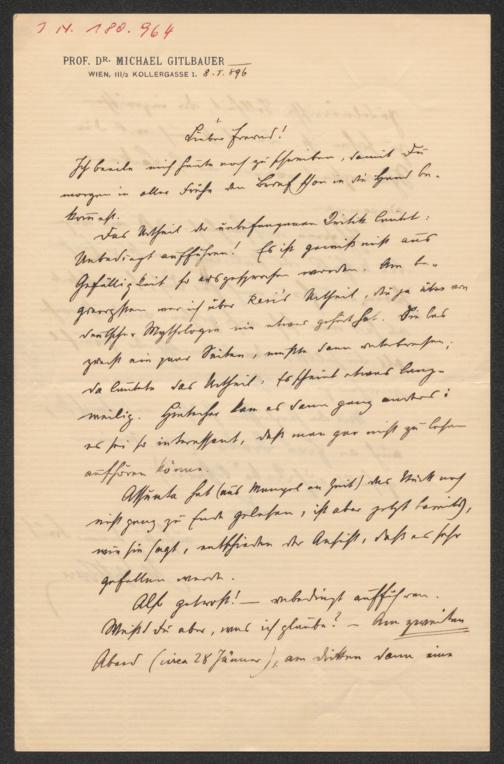 I N. 180.964
PROF. DR. MICHAEL GITLBAUER
WIEN, III/2 KOLLERGASSE 1. 8.I.896
Lieber Freund!
Ich beeile mich heute noch zu schreiben, damit Du
morgen in aller Frühe den Brief schon in die Hand be-
kommst.
Das Urtheil der unbefangenen Kritik lautet:
Unbedingt aufführen! Es ist gewiß nicht aus
Gefälligkeit so ausgesprochen worden. Am be-
gierigsten war ich über Urtheil, die ja über von
deutscher Mythologie nie etwas gehört hat. Sie las
zuerst ein paar Seiten, mußte dann unterbrechen;
da lautete das Urtheil: Es scheint etwas lang-
weilig. Hinterher kam es dann ganz anders:
es sei so interessant, daß man gar nicht zu lesen
aufhören könne.
Assunta hat (aus Mangel an Zeit) das Stück noch
nicht ganz zu Ende gelesen, ist aber jetzt bereits,
wie sie sagt, entschieden der Ansicht, daß es sehr
gefallen werde.
Also getrost! — unbedingt aufführen.
Weißt Du aber, was ich glaube? — Am zweiten
Abend (circa 28 Jänner), am dritten dann eine